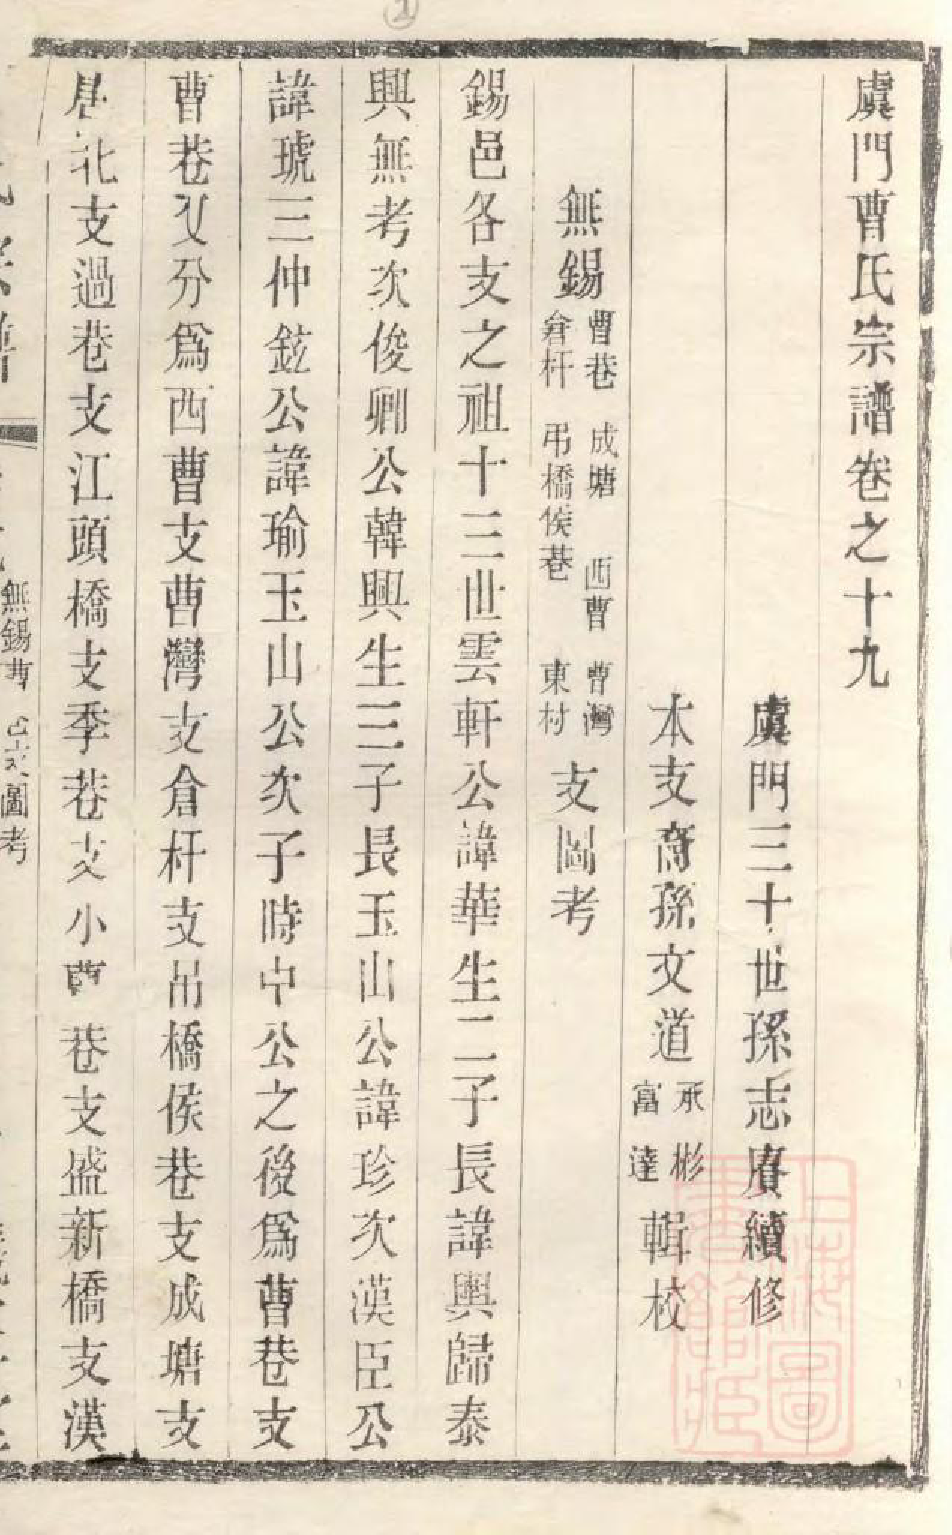 虞門曹氏宗譜卷之十九
虞門三十世孫志賡續修
本支裔孫文道 承彬 富達 輯校
無錫 曹巷 成塘 西曹 曹灣 倉杆 弔橋侯巷 東村 支圖考
錫邑各支之祖十三世雲軒公諱華生二子長諱興歸泰
興無考次俊卿公韓興生三子長玉山公諱珍次漢臣公
諱琥三仲鉉公諱瑜玉山公次子時中公之後爲曹巷支
曹巷又分爲西曹支曹灣支倉杆支吊橋侯巷支成塘支
北支過巷支江頭橋支季巷支小曹巷支盛新橋支漢
無錫曹 支圖考